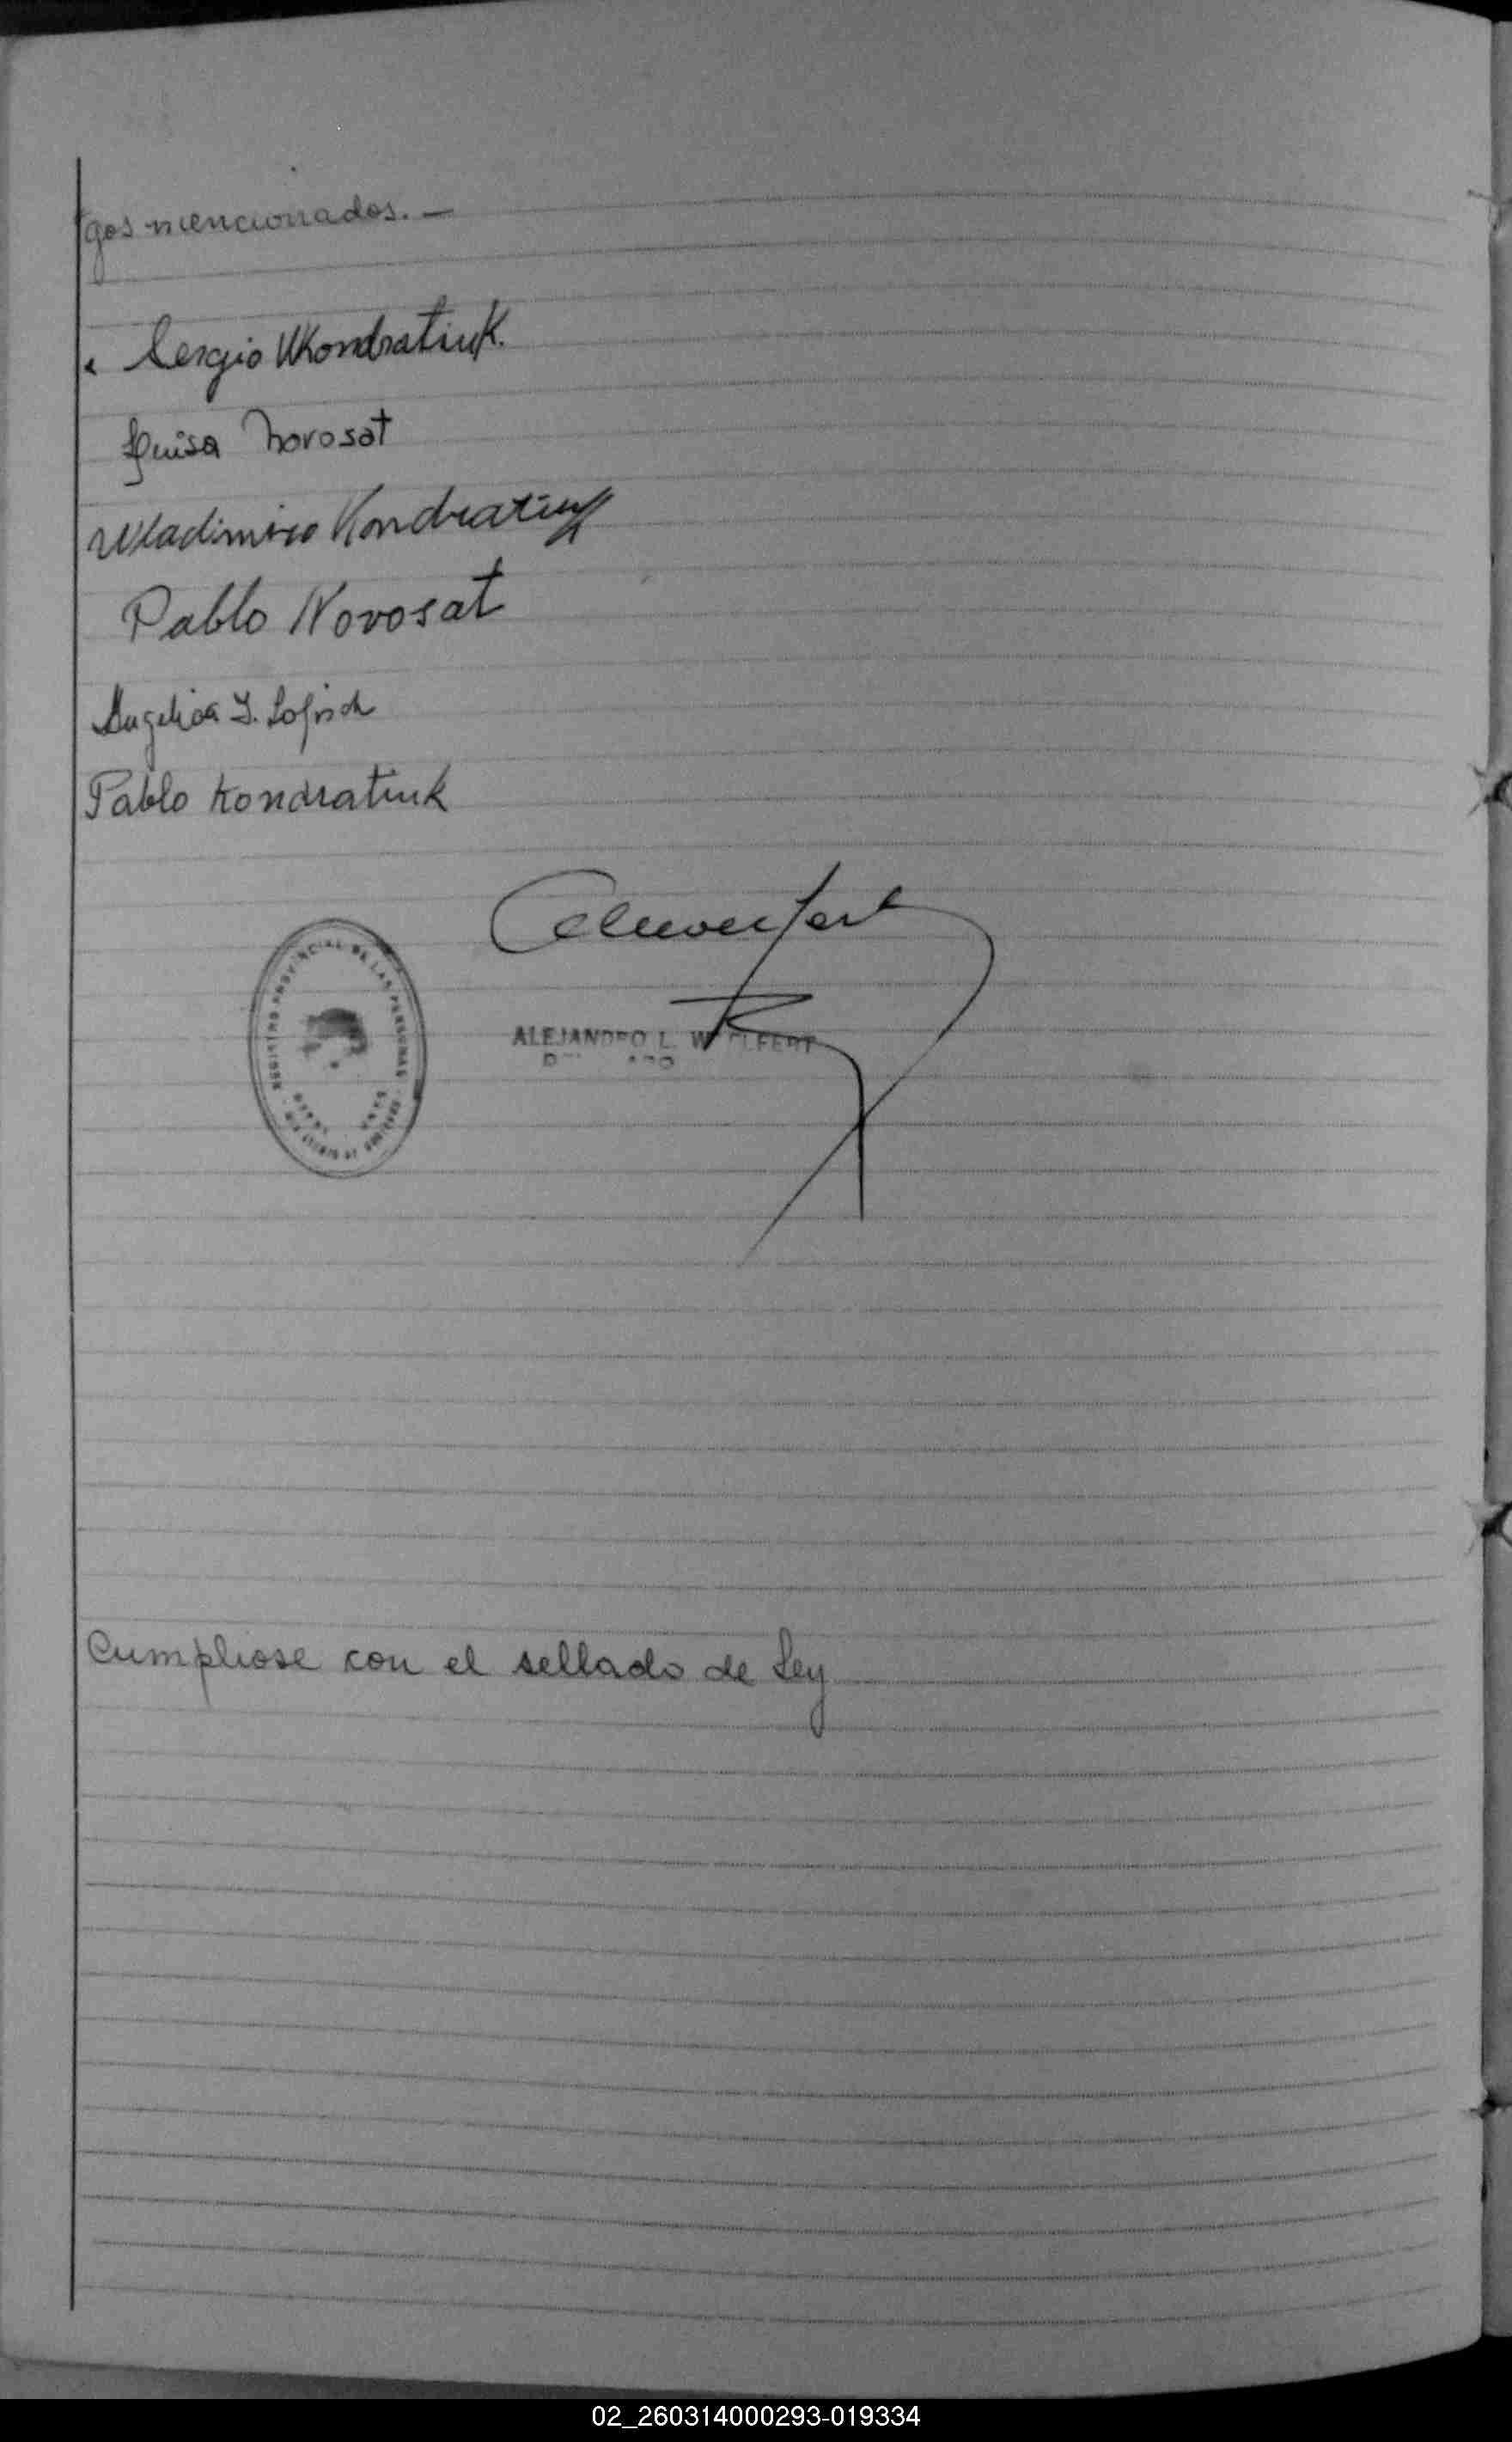 gos mencionados. —
Sergio WKondratiuk.
Luisa Novosat
Wladimiro Kondratiuk
Pablo Novosat
Angelica
Pablo Kondratiuk
REGISTRO PROVINCIAL DE LAS PERSONAS
ALEJANDRO L. W
Cumpliose con el sellado de Ley
02_260314000293-019334